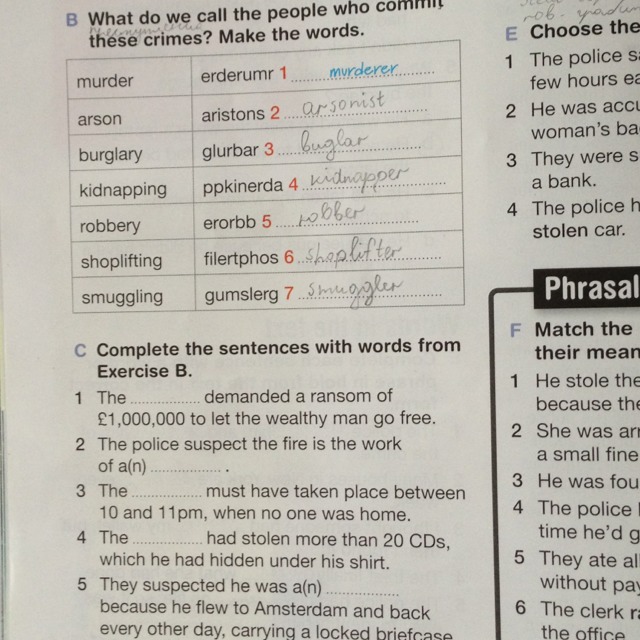 B What do we call the people who commit
these crimes? Make the words.
murder erderumr 1 murderer
arson aristons 2 arsonist
burglary glurbar 3 buglar
kidnapping ppkinerda 4 kidnapper
robbery erorbb 5 robber
shoplifting filertphos 6 shoplifter
smuggling gumslerg 7 smuggler
C Complete the sentences with words from
Exercise B.
1 The .................. demanded a ransom of
£1,000,000 to let the wealthy man go free.
2 The police suspect the fire is the work
of a(n) .................. .
3 The .................. must have taken place between
10 and 11pm, when no one was home.
4 The .................. had stolen more than 20 CDs,
which he had hidden under his shirt.
5 They suspected he was a(n) ..................
because he flew to Amsterdam and back
every other day, carrying a locked briefcase
E Choose the
1 The police s
few hours ea
2 He was accu
woman's ba
3 They were s
a bank.
4 The police h
stolen car.
Phrasal
F Match the
their mean
1 He stole the
because the
2 She was arr
a small fine
3 He was fou
4 The police
time he'd g
5 They ate al
without pay
6 The clerk ra
the office